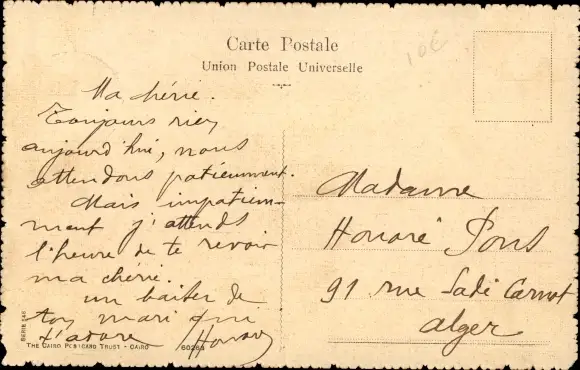 Carte Postale
Union Postale Universelle
10€
Ma chérie.
Toujours rien
aujourd'hui, nous
attendons patiemment.
Mais impatiem-
ment j'attends
l'heure de te revoir
ma chérie.
un baiser de
ton mari qui
t'adore Honoré
Madame
Honoré Pons
91 rue Sadi Carnot
Alger
SERIE 546
THE CAIRO POSTCARD TRUST - CAIRO
60263